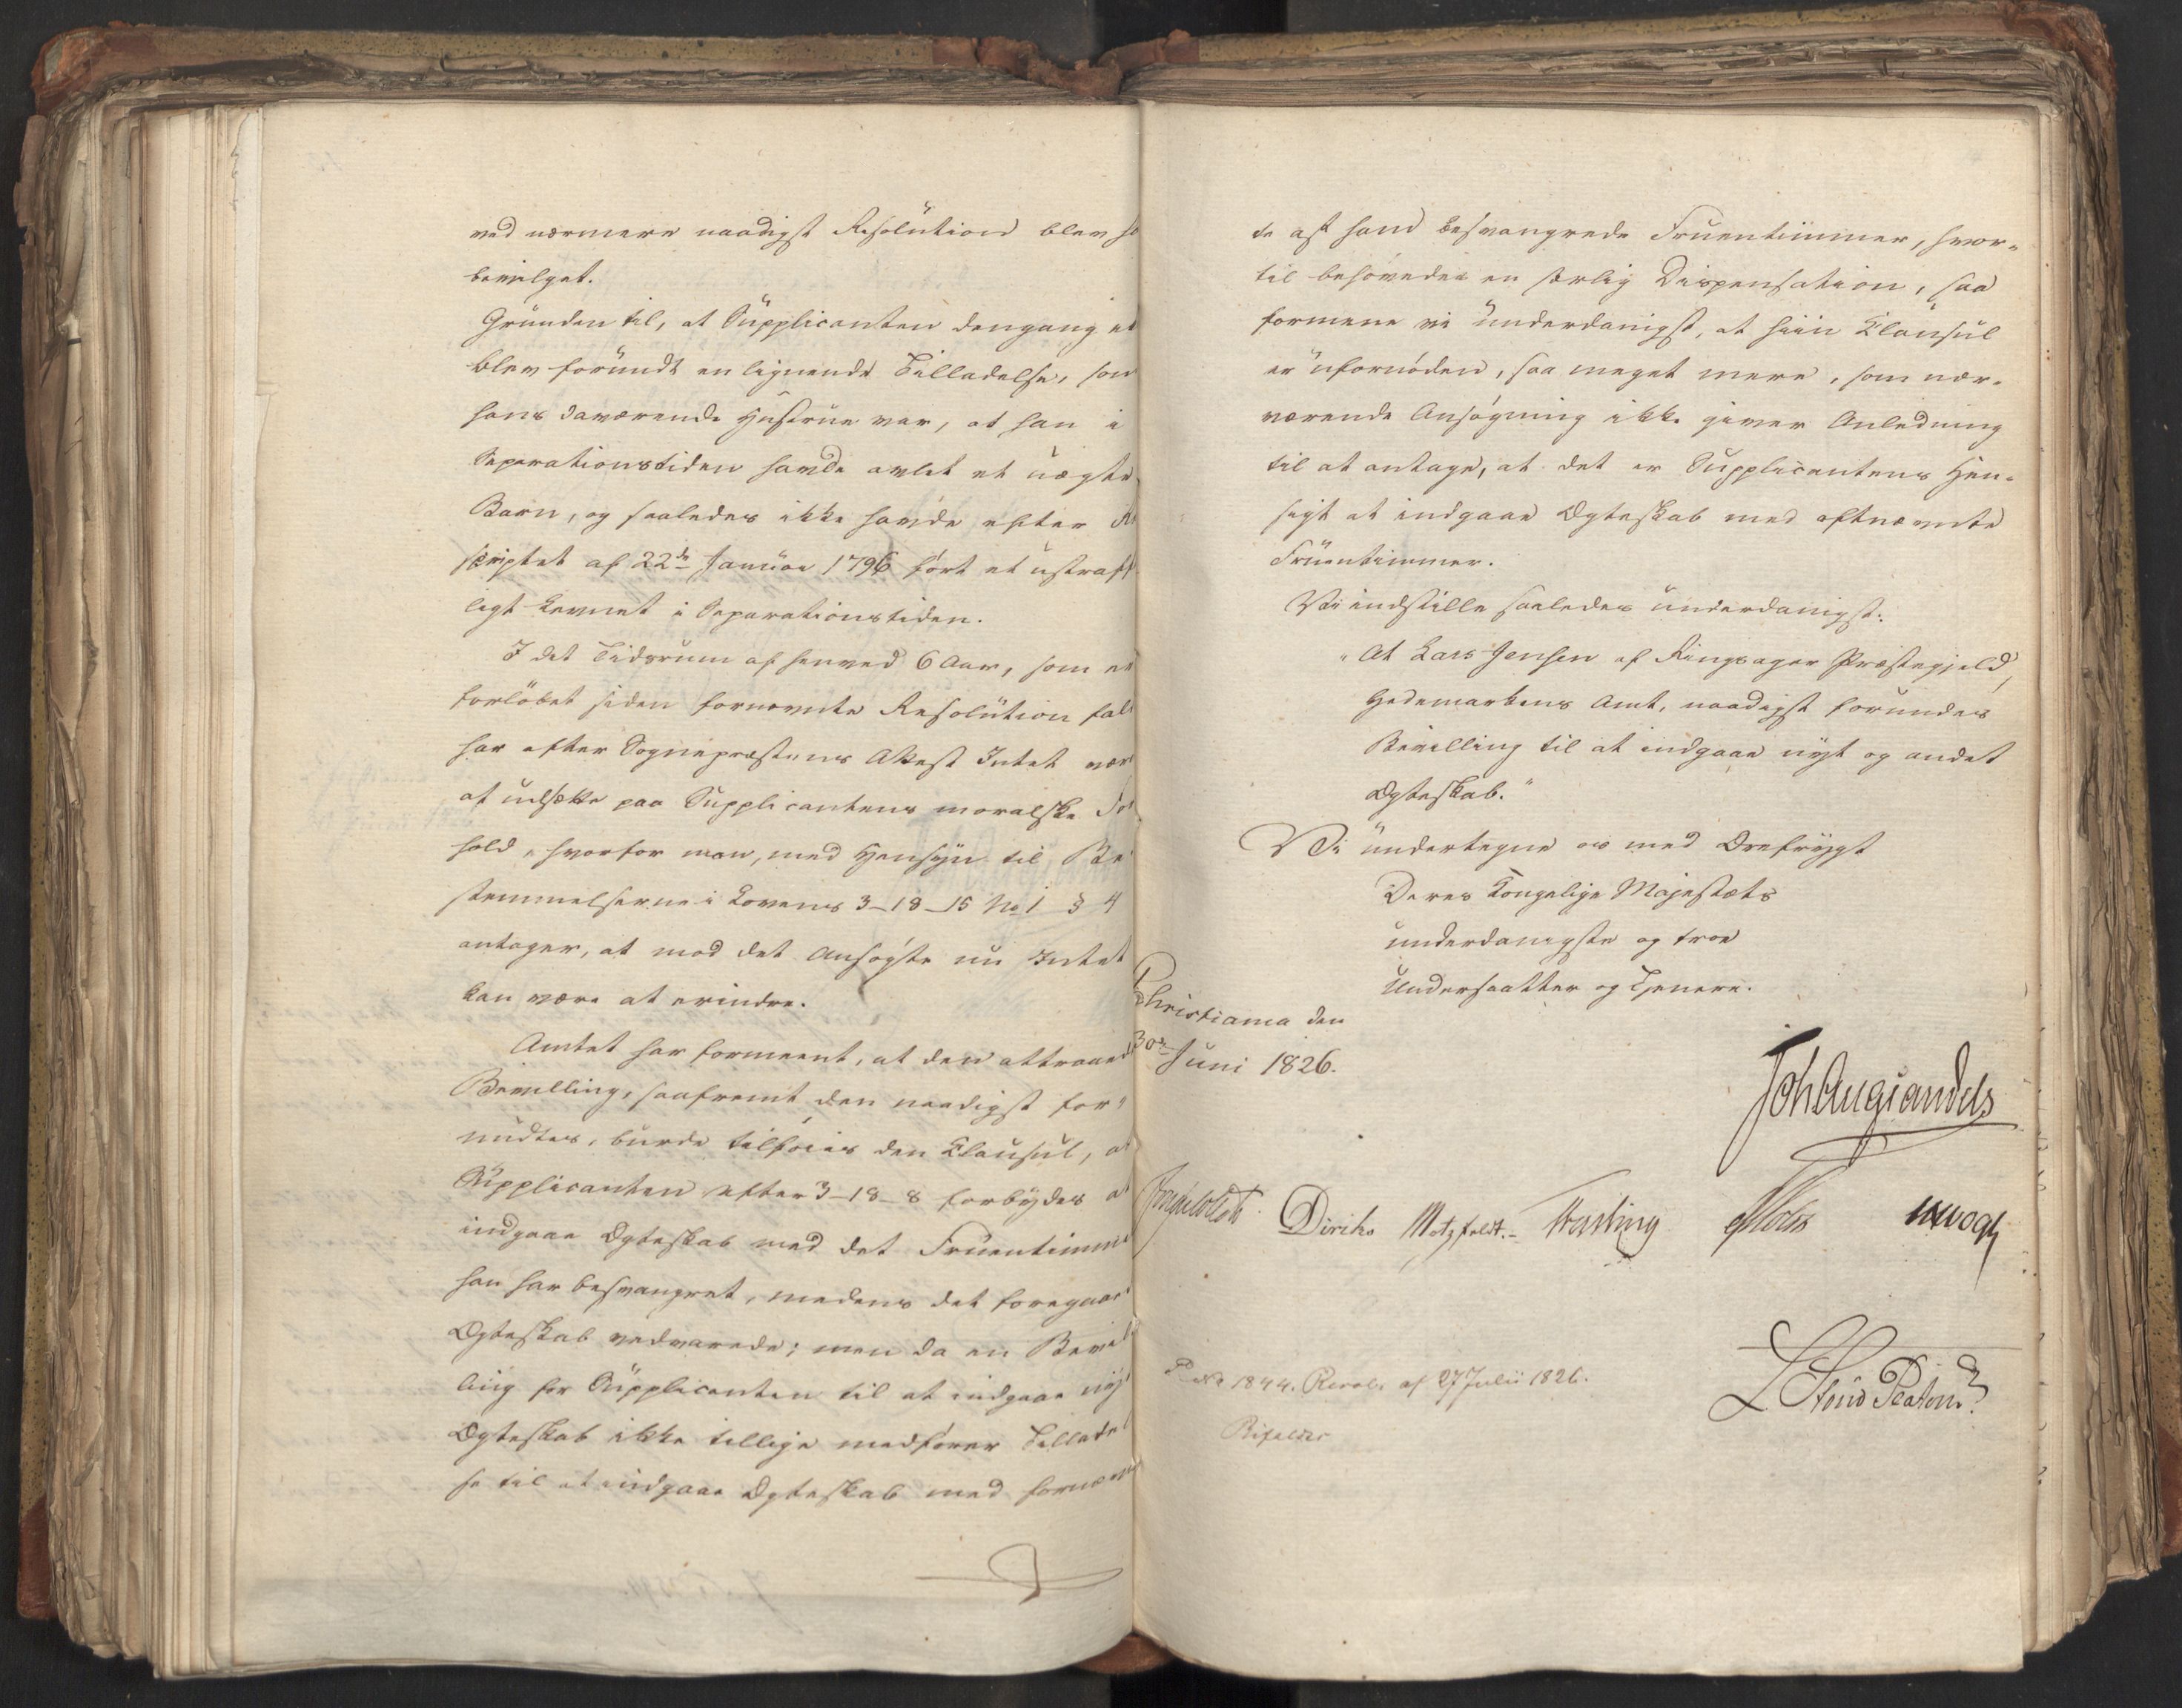 ved nærmere naadigst Resolution blev h
bevilget.
Grunden til, at Supplicanten dengang ei
blev forundt en lignende Tilladelse, som
hans daværende Hustrue var, at han i
Separationstiden havde avlet et uægte
Barn, og saaledes ikke havde efter Re
scriptet af 22de Januar 1796 ført et ustraff
ligt Levnet i Separationstiden.
I det Tidsrum af henved 6 Aar, som er
forløbet siden fornævnte Resolution fald
har efter Sognepræstens Attest Intet vær
at udsætte paa Supplicantens moralske For
hold, hvorfor man, med Hensyn til Be
stemmelserne i Lovens 3-18-15 No 1 § 4
antager, at mod det Ansøgte nu Intet
kan være at erindre.
Amtet har formeent, at den attraaed
Bevilling, saafremt den naadigst for-
undtes, burde tilføies den Clausul, at
Supplicanten efter 3-18-8 forbydes at
indgaae Ægteskab med det Fruentimme
han har besvangret, medens det foregaae
Ægteskab vedvarede; men da en Bevil
ling for Supplicanten til at indgaae nyt
Ægteskab ikke tillige medfører Tilladel
se til at indgaae Ægteskab med fornævn
te af ham besvangrede Fruentimmer, hvor-
til behøvedes en særlig Dispensation, saa
formene vi underdanigst, at hiin Clausul
er ufornøden, saa meget mere, som nær-
værende Ansøgning ikke giver Anledning
til at antage, at det er Supplicantens Hen-
sigt at indgaae Ægteskab med oftnævnte
Fruentimmer.
Vi indstille saaledes underdanigst:
"At Lars Jensen af Ringsager Præstegjeld,
Hedemarkens Amt, naadigst forundes
Bevilling til at indgaae nyt og andet
Ægteskab."
Vi undertegne os med Ærefrygt
Deres Kongelige Majestæts
underdanigste og troe
Undersaatter og Tjenere.
Christiania den
30te Juni 1826.
Joh Aug Sandels
Diriks Motzfeldt. Treschow
No 1844. Resol. af 27 Julii 1826.
Bifaldes